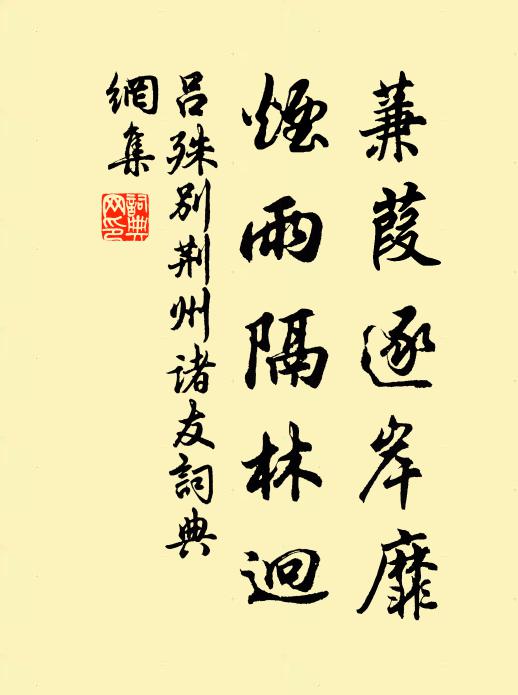 蒹葭逐岸靡
煙雨隔林迥
吕殊别荆州诸友詞典
網集
詞典
网印